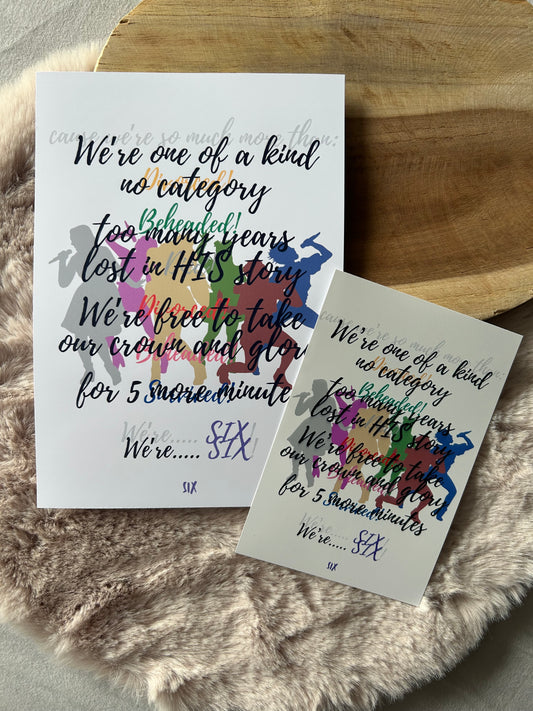 cause we're so much more than:
We're one of a kind
Divorced!
no category
Beheaded!
too many years
lost in HIS story
We're free to take
our crown and glory
Beheaded!
for 5 more minute
We're..... SIX!
We're..... SIX!
SIX
cause we're so much more than:
We're one of a kind
no category
Beheaded!
too many years
lost in HIS story
We're free to take
our crown and glory
Beheaded!
for 5 more minutes
We're..... SIX!
We're..... SIX!
SIX